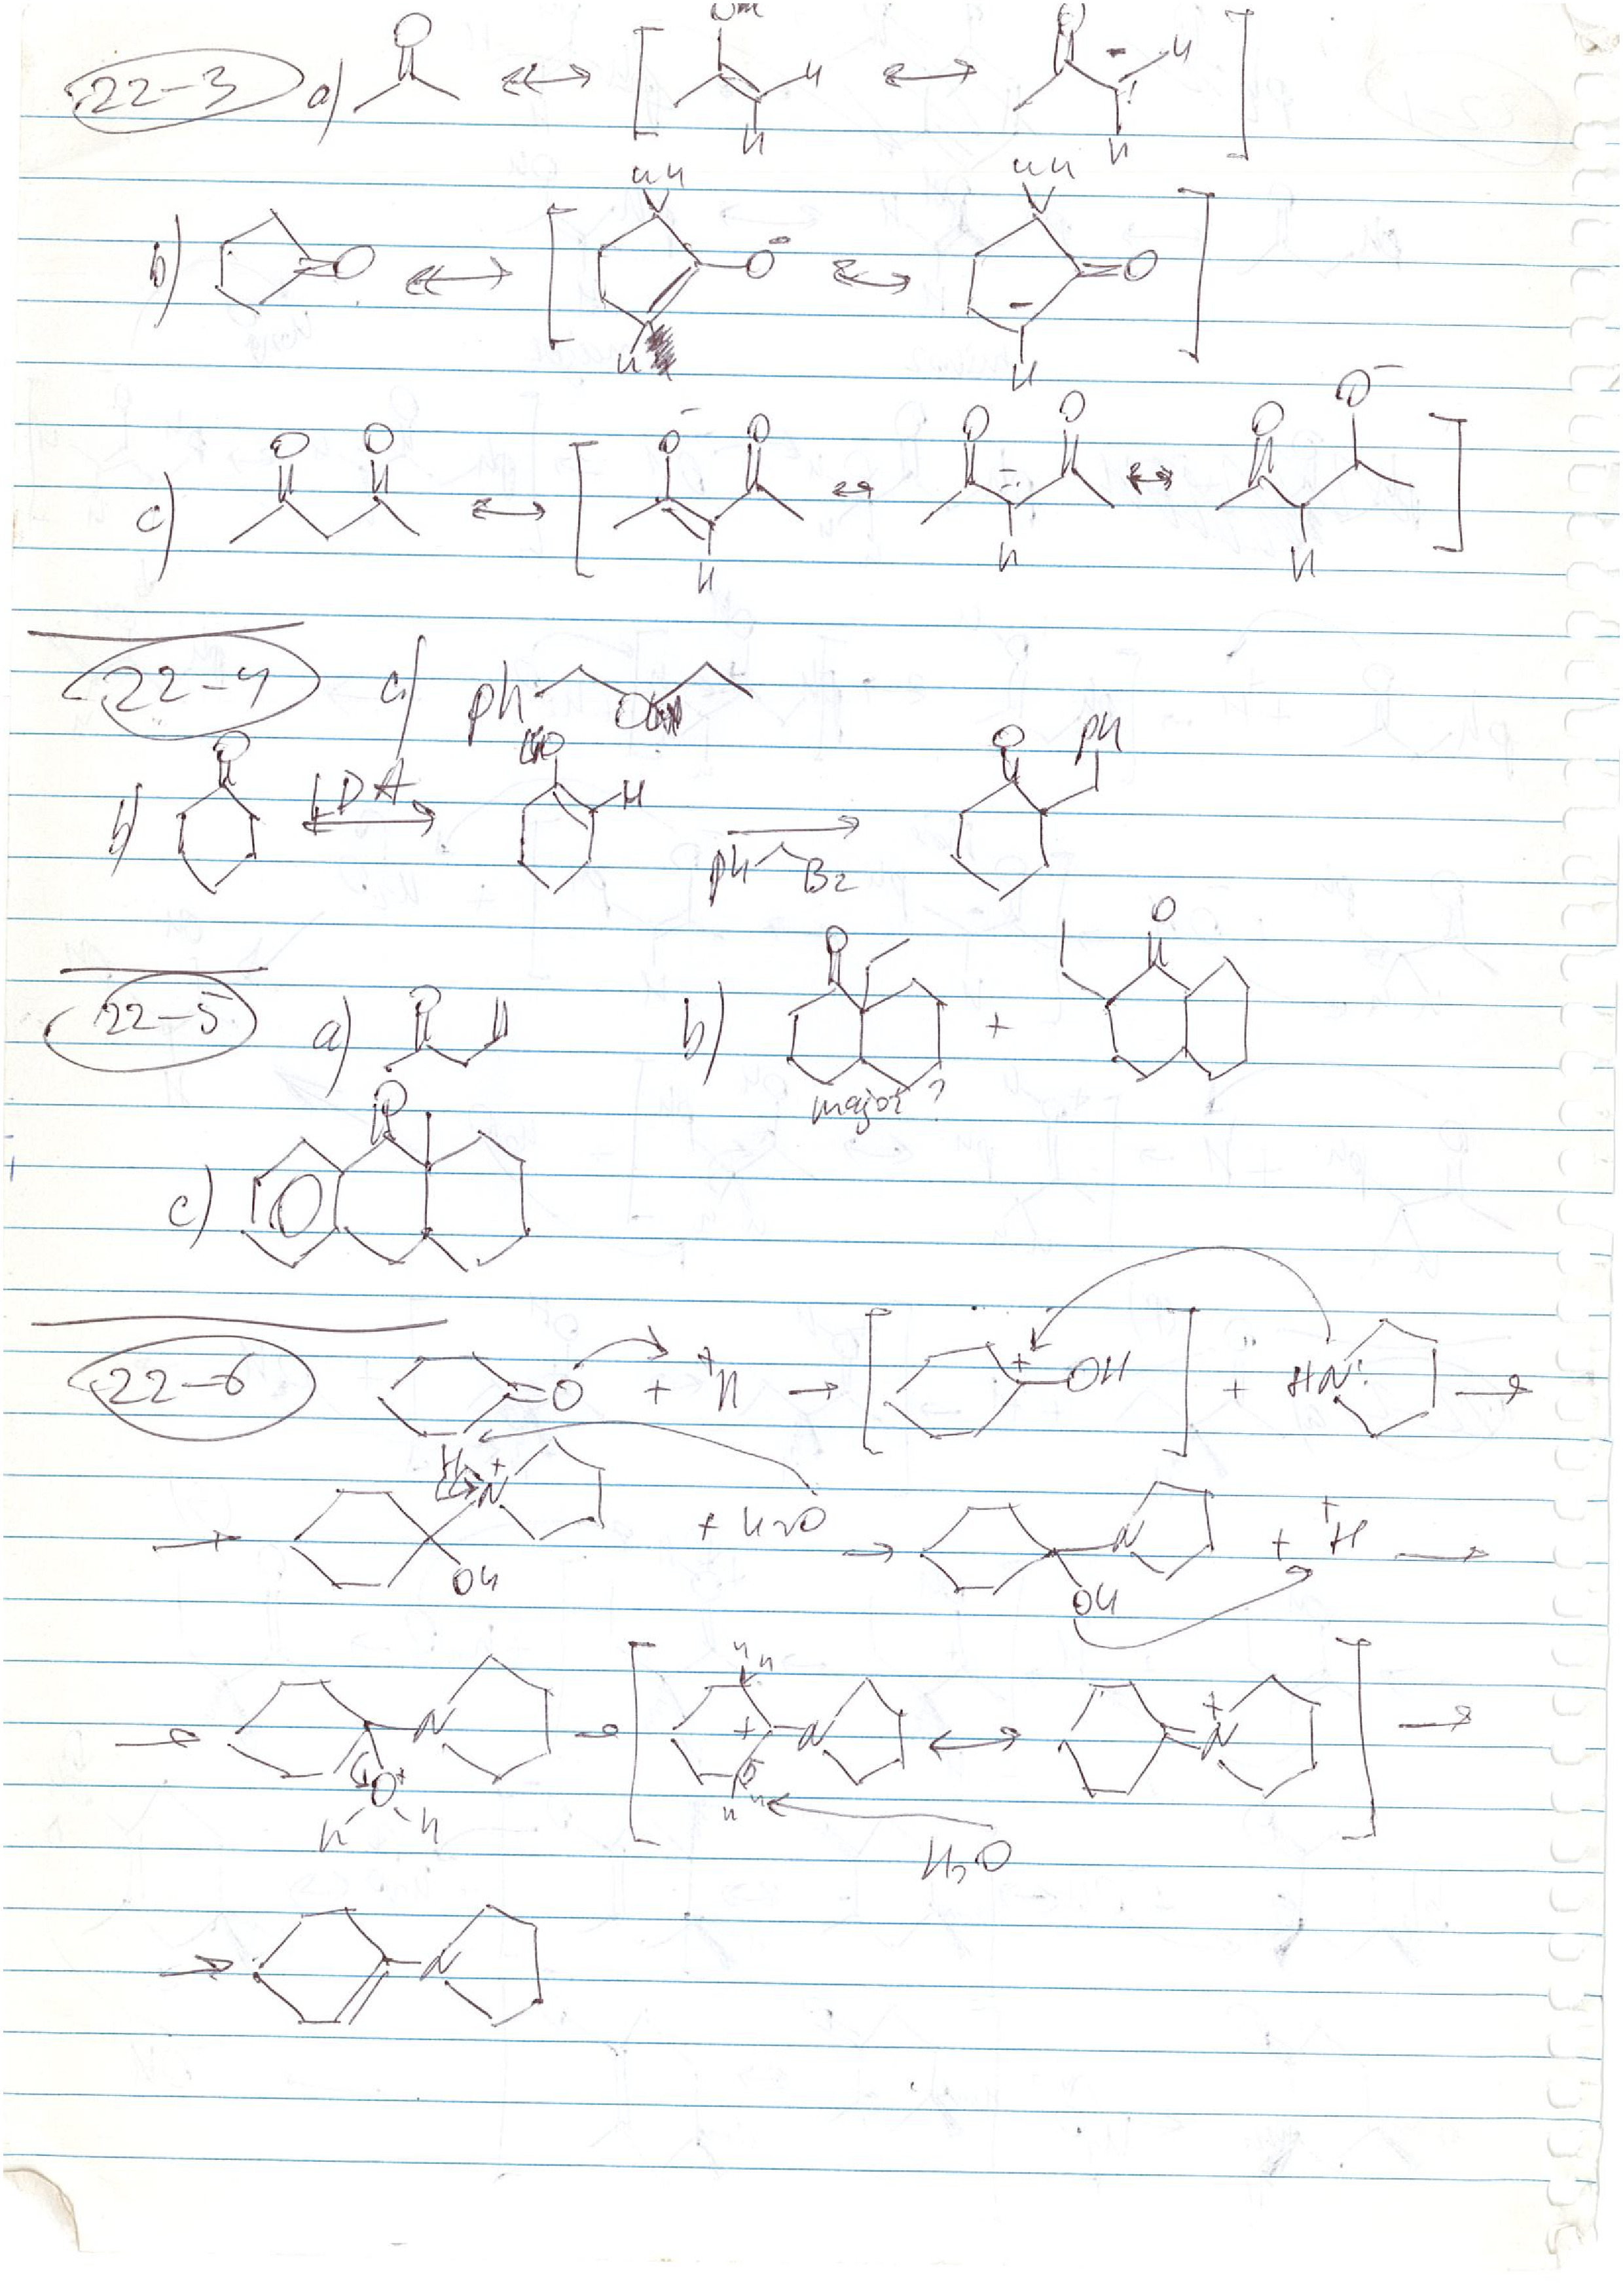 22-3 a) O H H O H H
b) O H H O⁻ H H H O H
c) O O O⁻ O H O O H O O⁻ H
22-4 a) Ph
b) O LDA H Ph Br O Ph
22-5 a) O b) O + O
major?
c) O
22-6 O + ⁺H → [ + OH ] + HN: →
→ H N⁺ OH + H2O → N OH + ⁺H →
→ N O⁺ H H → [ H H + N H H ↔ N⁺ ] →
H2O
→ N